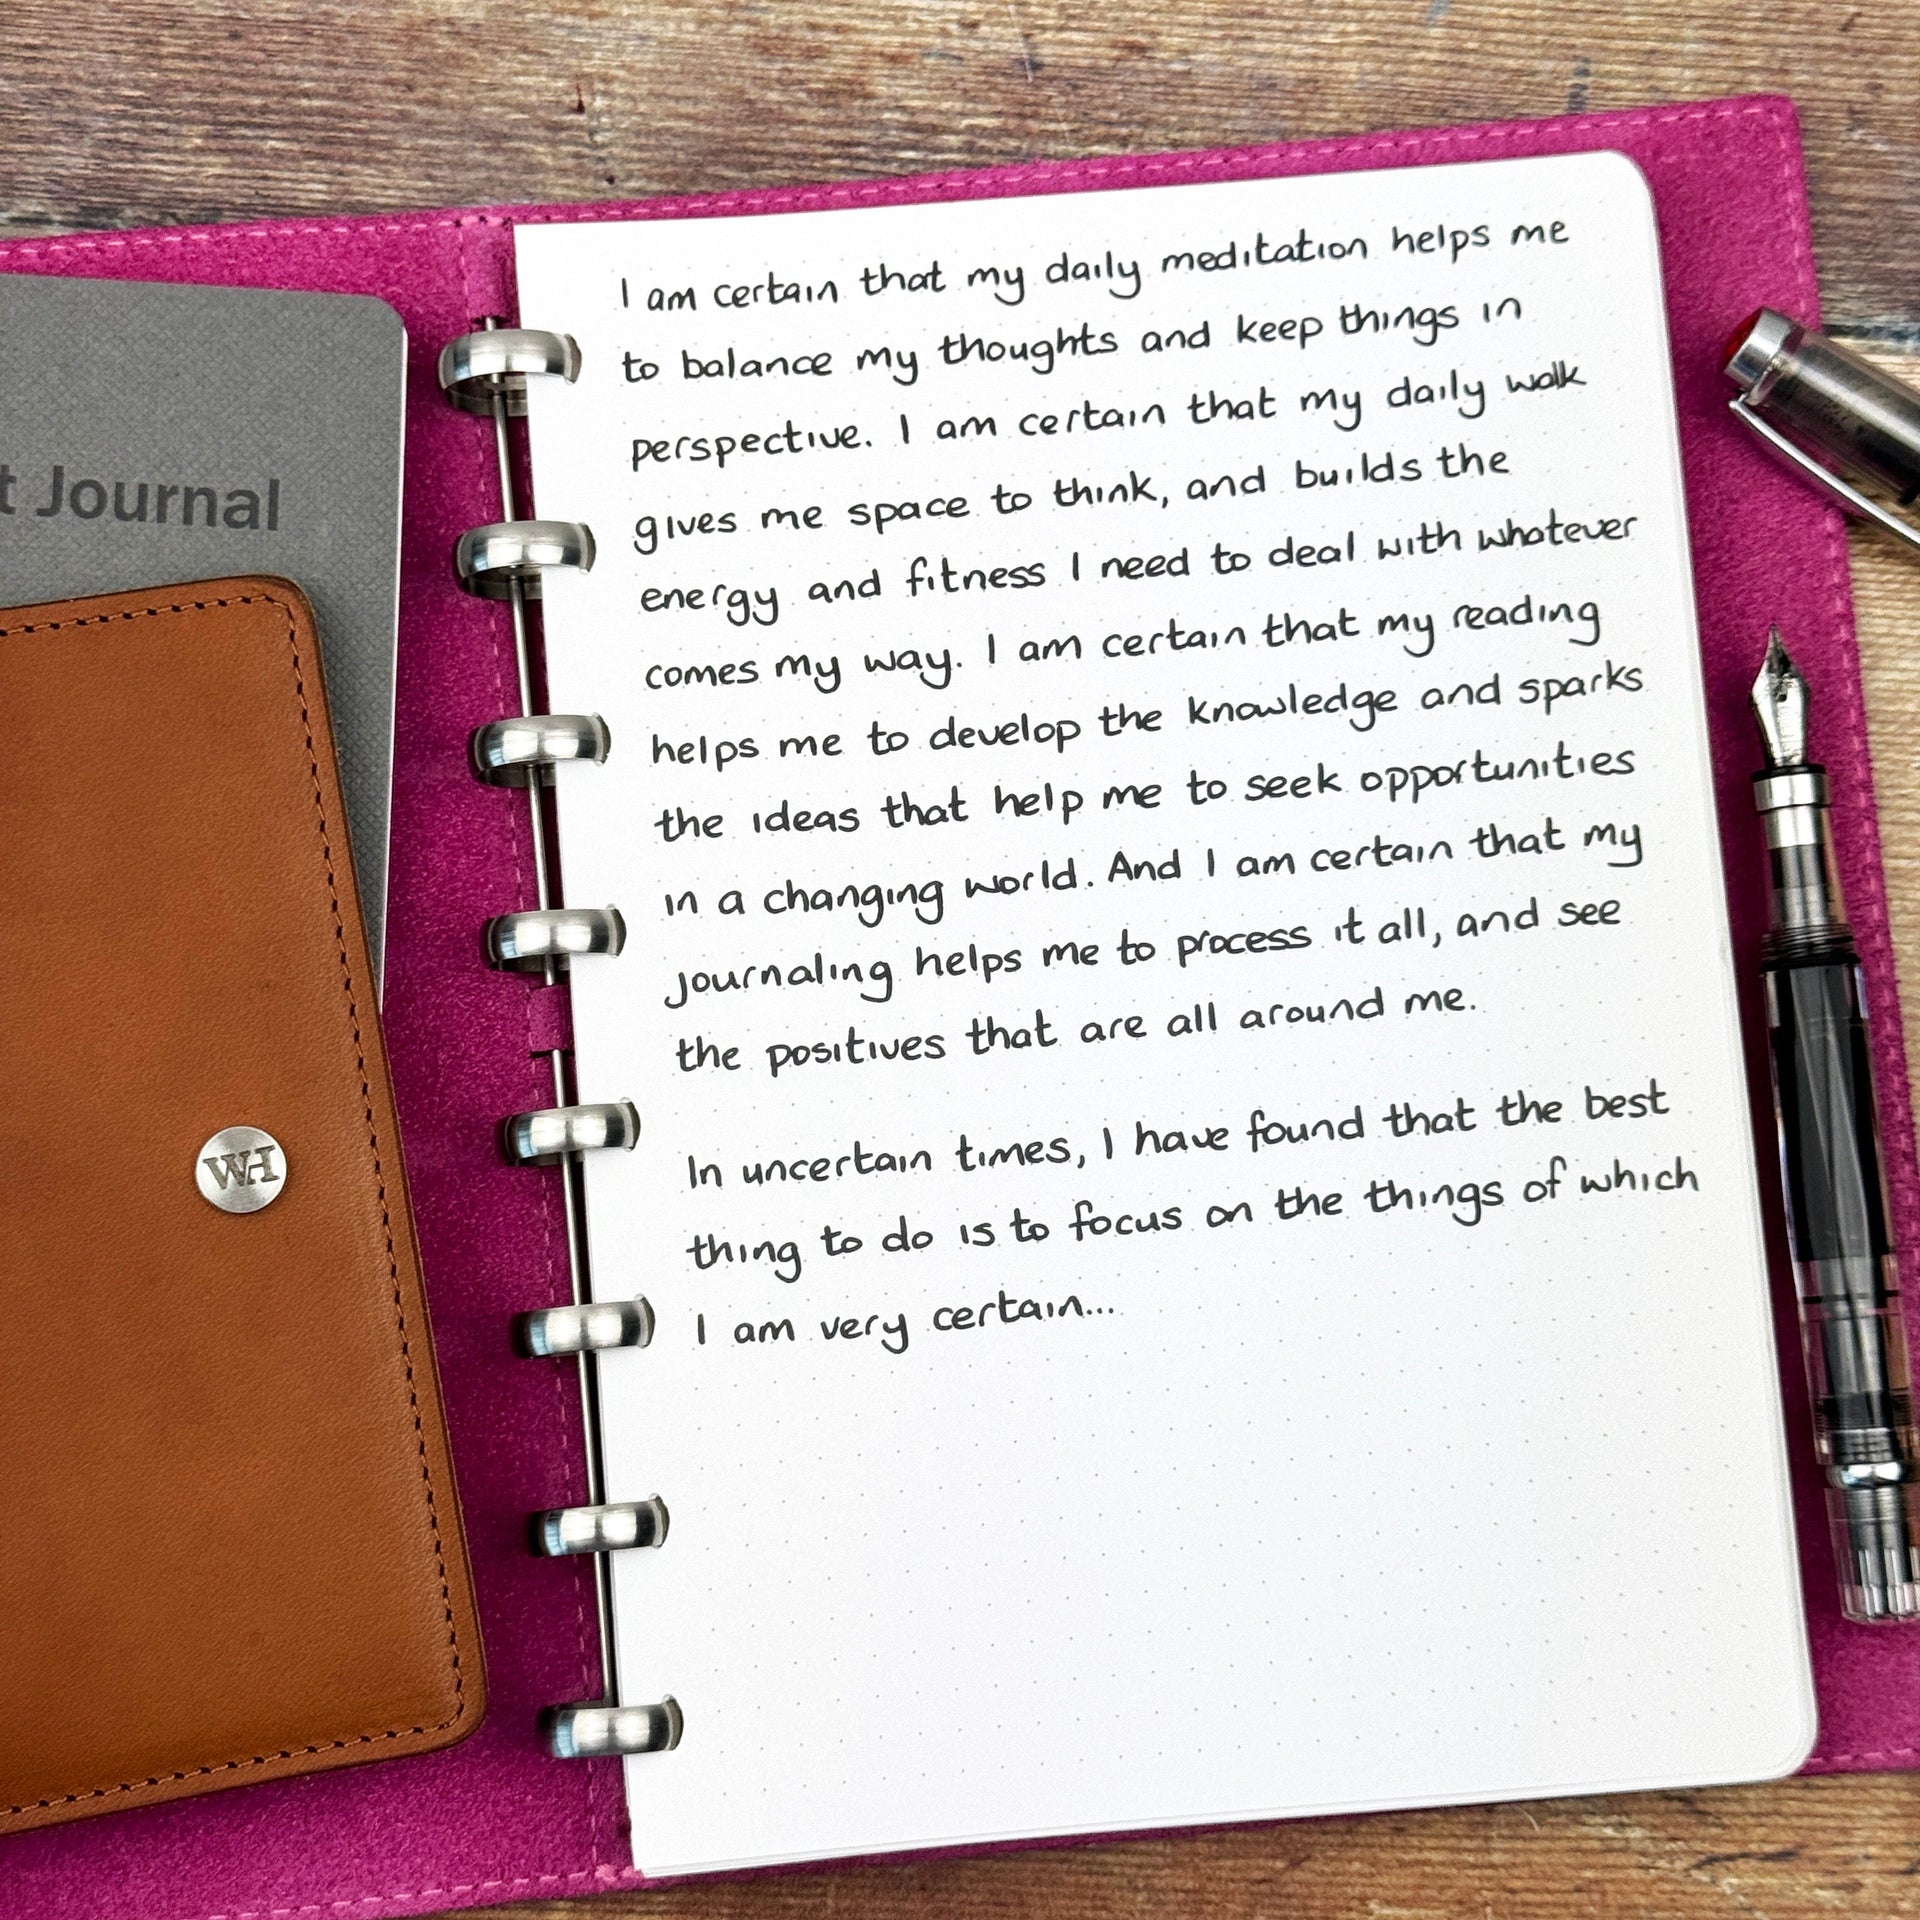 I am certain that my daily meditation helps me
to balance my thoughts and keep things in
perspective. I am certain that my daily walk
gives me space to think, and builds the
energy and fitness I need to deal with whatever
comes my way. I am certain that my reading
helps me to develop the knowledge and sparks
the ideas that help me to seek opportunities
in a changing world. And I am certain that my
journaling helps me to process it all, and see
the positives that are all around me.
In uncertain times, I have found that the best
thing to do is to focus on the things of which
I am very certain...
t Journal
WH